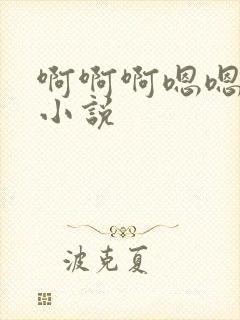 啊啊啊嗯嗯
小说
波克夏